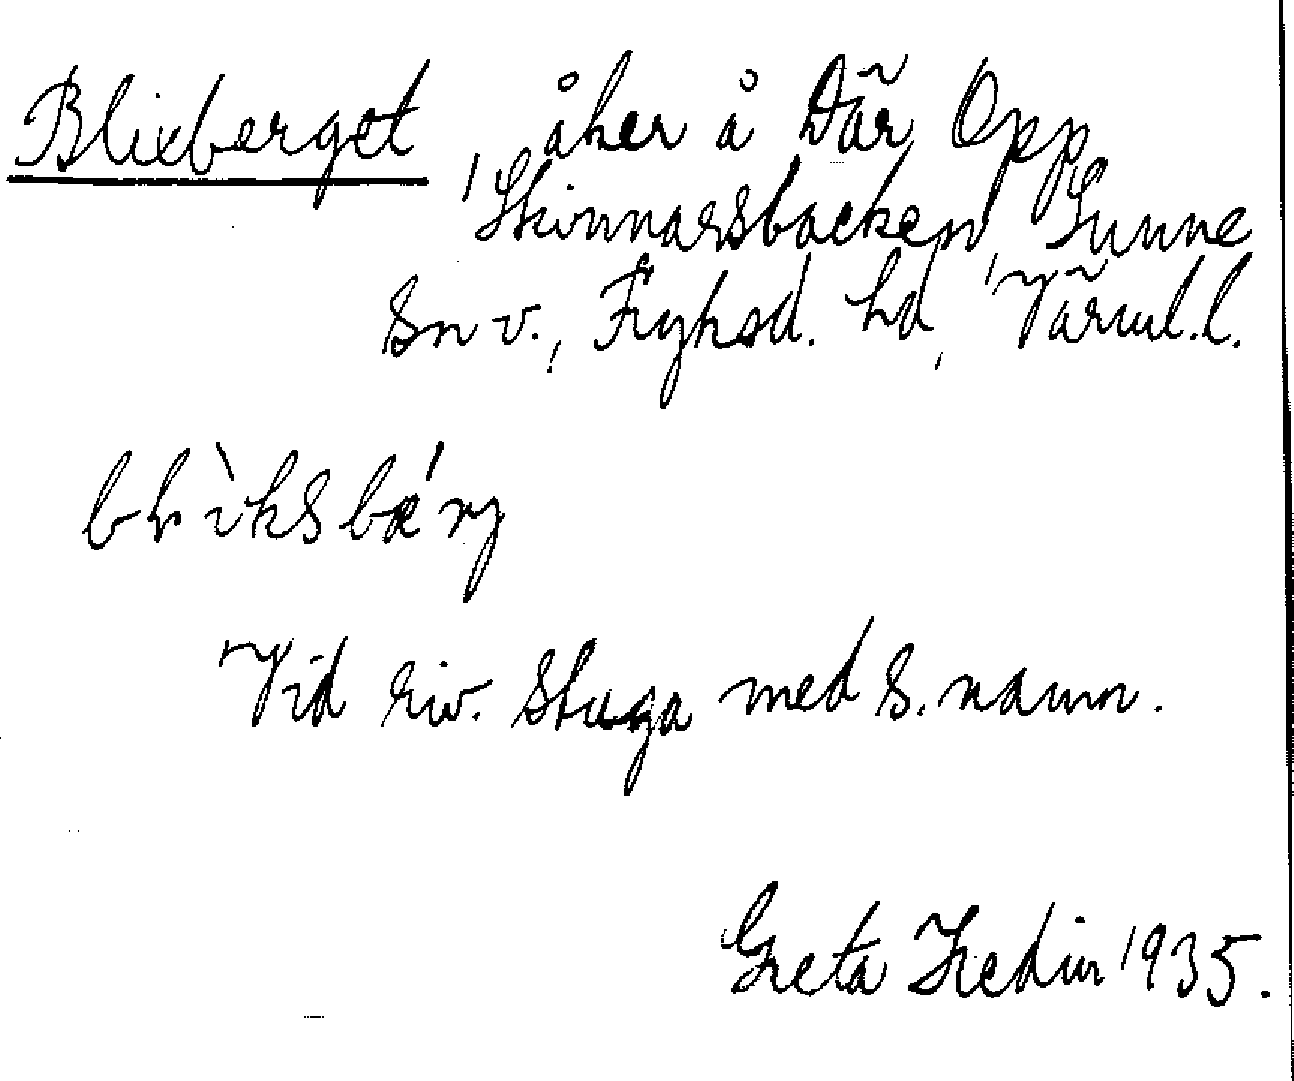 Blixberget, åker å Där Opp,
Skinnarsbacken, Sunne
Sn v., Fryksd. hd, Värml. l.
blìksbæ´rj
Vid riv. stuga med s. namn.
Greta Hedin 1935.